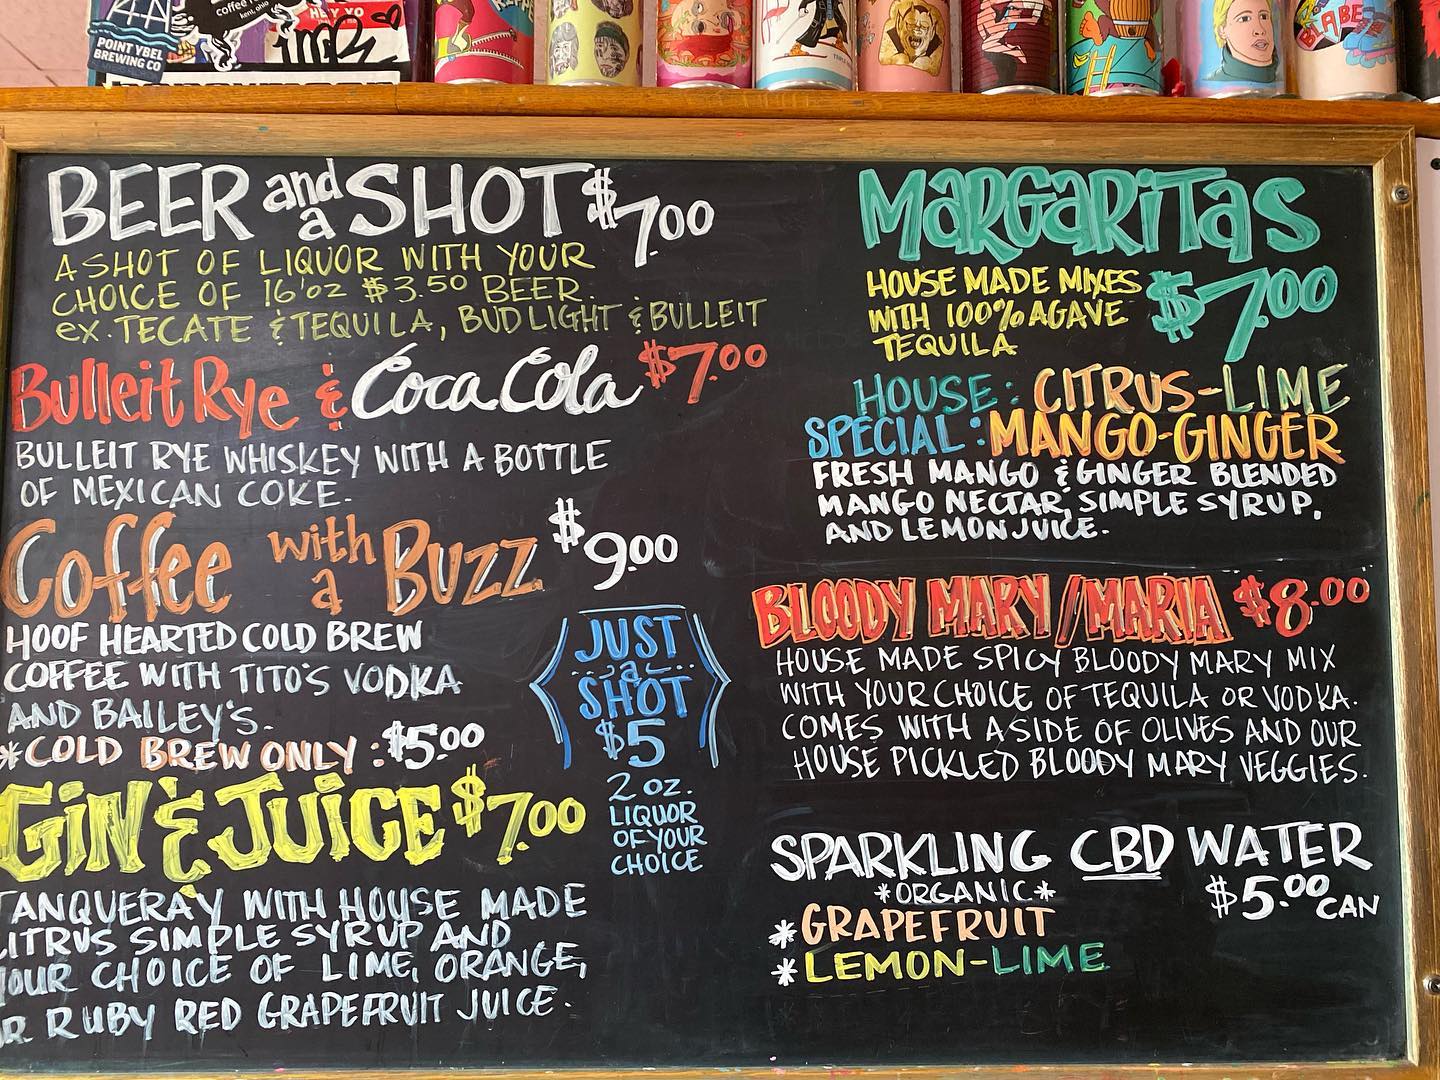 coffee
kent, ohio
HEY YO
POINT YBEL
BREWING CO
BLABE
BEER and a SHOT $7.00
A SHOT OF LIQUOR WITH YOUR
CHOICE OF 16 oz $3.50 BEER.
ex. TECATE & TEQUILA, BUD LIGHT & BULLEIT
Bulleit Rye & Coca Cola $7.00
BULLEIT RYE WHISKEY WITH A BOTTLE
OF MEXICAN COKE.
Coffee with a Buzz $9.00
HOOF HEARTED COLD BREW
COFFEE WITH TITO'S VODKA
AND BAILEY'S.
*COLD BREW ONLY: $5.00
JUST
a
SHOT
$5
2 OZ.
LIQUOR
OF YOUR
CHOICE
GIN & JUICE $7.00
TANQUERAY WITH HOUSE MADE
CITRUS SIMPLE SYRUP AND
YOUR CHOICE OF LIME, ORANGE,
OR RUBY RED GRAPEFRUIT JUICE.
MARGARITAS
HOUSE MADE MIXES
WITH 100% AGAVE
TEQUILA
$7.00
HOUSE: CITRUS-LIME
SPECIAL: MANGO-GINGER
FRESH MANGO & GINGER BLENDED
MANGO NECTAR, SIMPLE SYRUP,
AND LEMON JUICE.
BLOODY MARY/MARIA $8.00
HOUSE MADE SPICY BLOODY MARY MIX
WITH YOUR CHOICE OF TEQUILA OR VODKA.
COMES WITH A SIDE OF OLIVES AND OUR
HOUSE PICKLED BLOODY MARY VEGGIES.
SPARKLING CBD WATER
*ORGANIC* $5.00 CAN
*GRAPEFRUIT
*LEMON-LIME